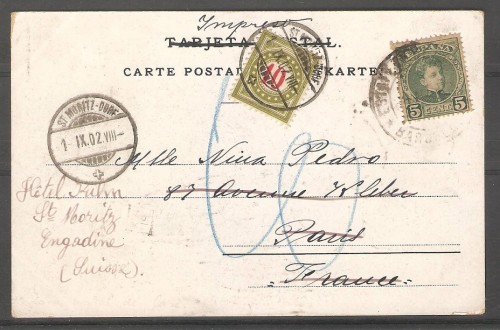 Impreso
TARJETA POSTAL.
CARTE POSTALE KARTE
ST. MORITZ-DORF
10
ESPAÑA
5 CENT 5
ST. MORITZ-DORF
1. IX.02.VIII-
Mlle Nina Pedro
87 Avenue Kleber
Paris
France
Hôtel Kulm
St Moritz
Engadine
(Suisse).